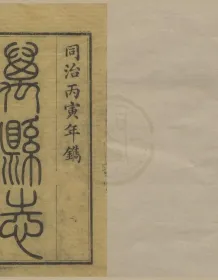 同治丙寅年鐫
萬縣志